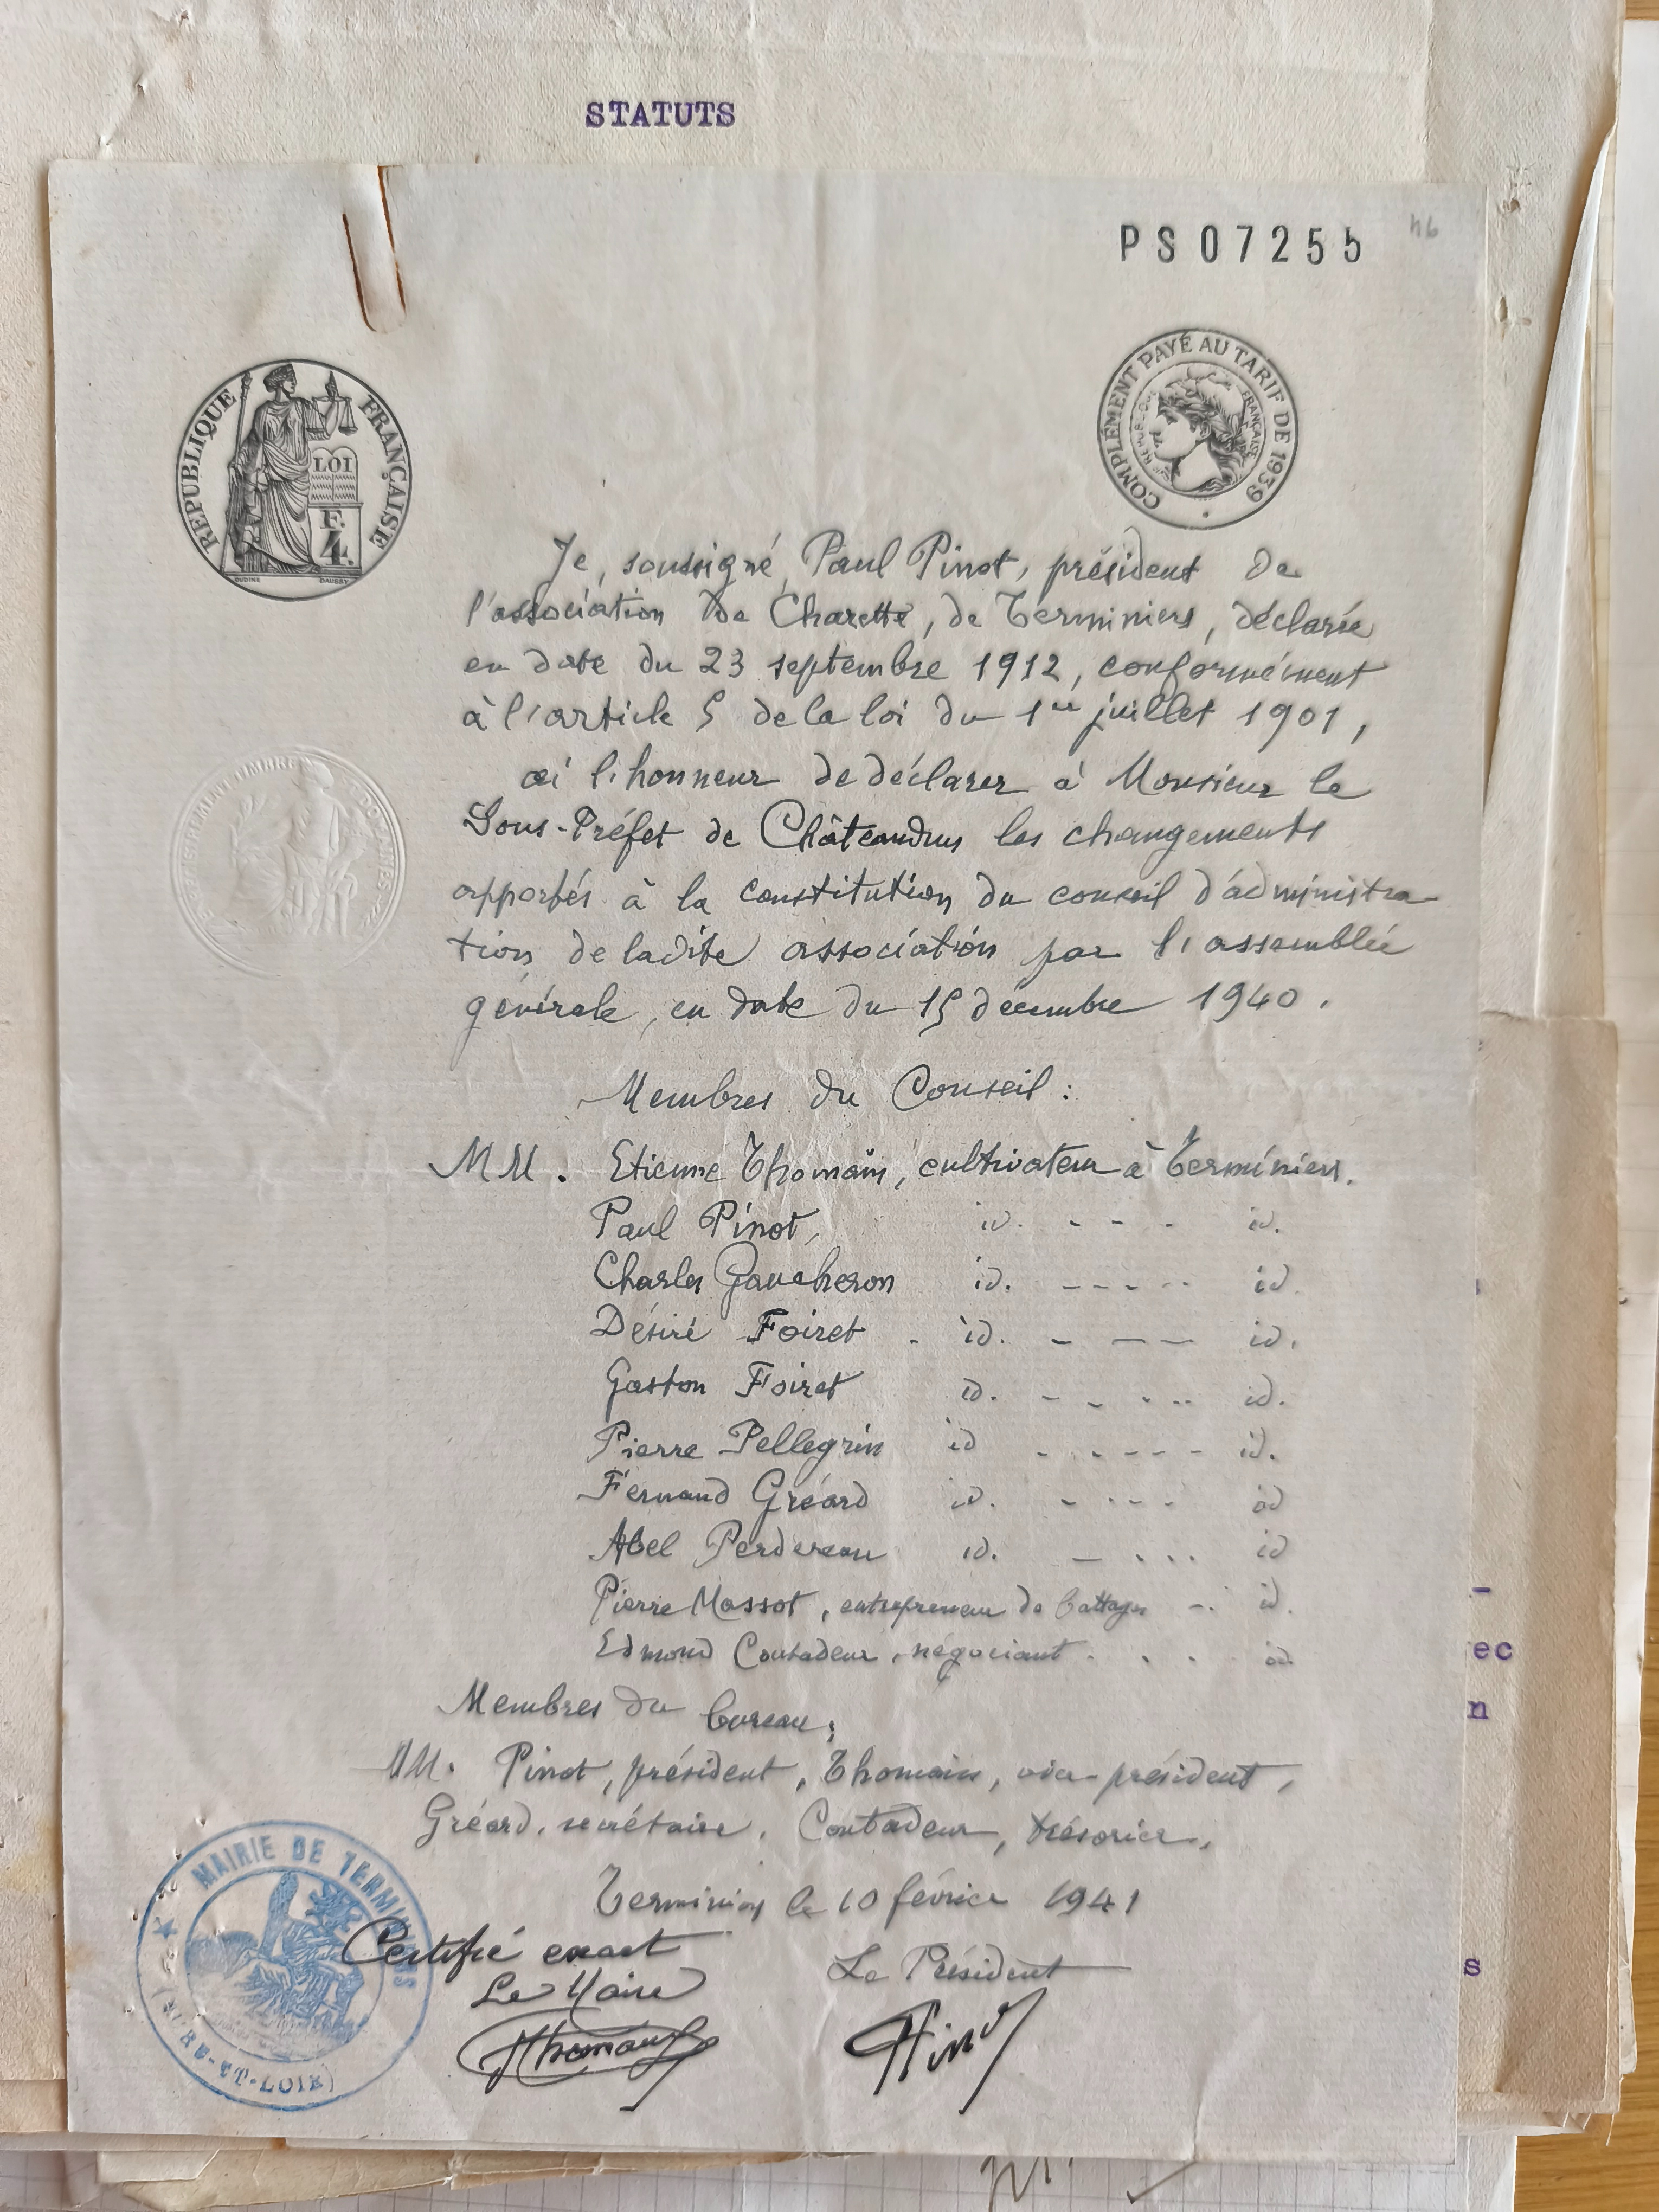 STATUTS
PS07255
46
RÉPUBLIQUE FRANÇAISE
LOI
F.
4.
OUDINÉ
DAUSSY
COMPLÉMENT PAYÉ AU TARIF DE 1939
FRANÇAISE
Je, soussigné, Paul Pinot, président de
l'association De Charette, de Terminiers, déclarée
en date du 23 septembre 1912, conformément
à l'article 5 de la loi du 1er juillet 1901,
ai l'honneur de déclarer à Monsieur le
Sous-Préfet de Châteaudun les changements
apportés à la constitution du conseil d'administra-
tion de ladite association par l'assemblée
générale, en date du 15 décembre 1940.
Membres du Conseil :
MM. Etienne Thomain, cultivateur à Terminiers.
Paul Pinot, id. - - - - id.
Charles Gaucheron id. - - - - - id.
Désiré Foiret - id. - - - - id.
Gaston Foiret id. - - - - - id.
Pierre Pellegrin id - - - - - id.
Fernand Gréard id. - - - - id
Abel Perdereau id. - - - - id
Pierre Massot, entrepreneur de battages - - id.
Edmond Coutadeur, négociant . . . . id.
Membres du bureau :
MM. Pinot, président, Thomain, vice-président,
Gréard, secrétaire, Coutadeur, trésorier.
Terminiers le 10 février 1941
Certifié exact
Le Président
Le Maire
Thomain
Pinot
MAIRIE DE TERMINIERS
(EURE-ET-LOIR)
ec
n
s